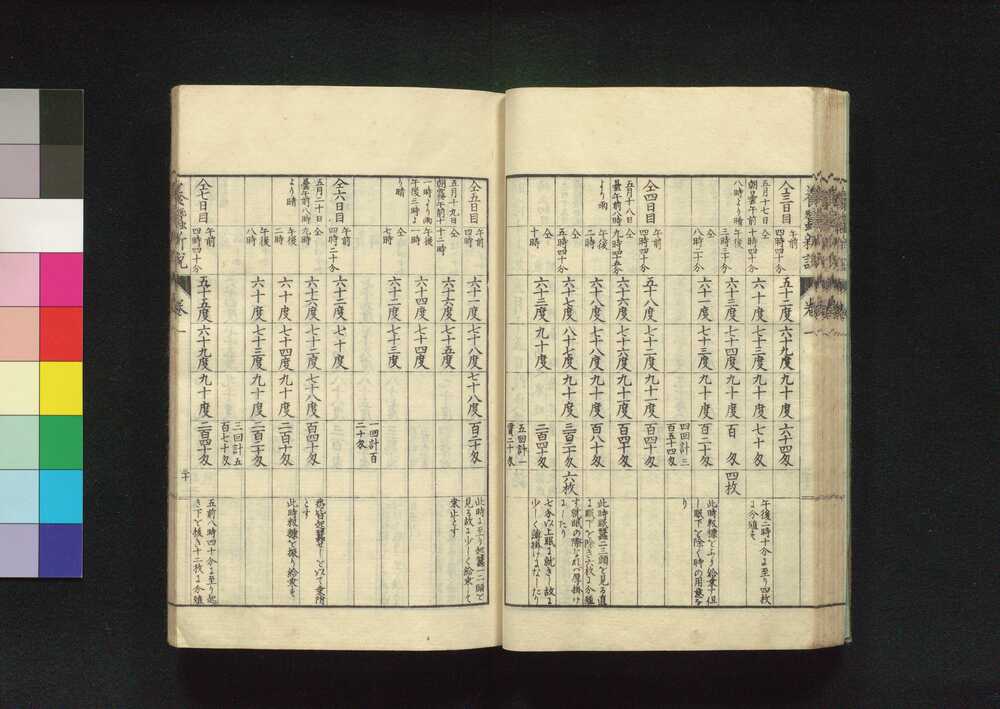 仝三日目
五月十七日
朝曇午前
八時より晴
午前
四時四十分
五十二度
六十九度
九十度
六十四匁
仝
十時四十分
六十度
七十三度
九十度
七十匁
午後二時十分に至り四枚
に分殖す
午後
三時三十分
六十三度
七十四度
九十度
百匁
四枚
仝
八時二十分
六十一度
七十三度
九十度
百二十匁
此時籾糠をふり給桑す但
し眠下を除く時の用意な
り
四回計三
百五十四匁
仝四日目
五月十八日
曇午前八時
より雨
午前
四時四十分
五十八度
七十二度
九十一度
百四十匁
仝
九時四十五分
六十六度
七十六度
九十度
百四十匁
午後
二時
六十八度
七十八度
九十度
百八十匁
此時眠蠶二三頭を見る直
に眠下を除き六枚に分殖
す就眠の際なれバ厚掛け
をしたり
仝
五時四十分
六十七度
八十七度
九十度
三百二十匁
六枚
仝
十時
六十三度
九十度
九十度
二百四十匁
七分以上眠に就きし故に
少しく薄掛けをなしたり
五回計一
貫二十匁
仝五日目
五月十九日
朝霧午前十
一時より雨
午後三時よ
り晴
午前
四時
六十一度
七十八度
七十八度
百二十匁
此時に至り起蠶一二頭を
見る故に少しく給桑して
桑止とす
仝
十二時
六十六度
七十五度
午後
一時
六十四度
七十四度
仝
七時
六十二度
七十三度
一回計百
二十匁
仝六日目
五月二十日
曇午前八時
より晴
午前
四時二十分
六十二度
七十度
仝
九時
六十六度
七十二度
七十八度
百四十匁
とす
午後
二時
六十度
七十四度
九十度
二百十匁
此時籾糠を振り給桑す
午後
八時
六十度
七十三度
九十度
二百二十匁
三回計五
百七十匁
仝七日目
午前
四時四十分
五十五度
六十九度
九十度
二百四十匁
五前八時四十分に至り起
き下を抜き十二枚に分殖
卷一
三十